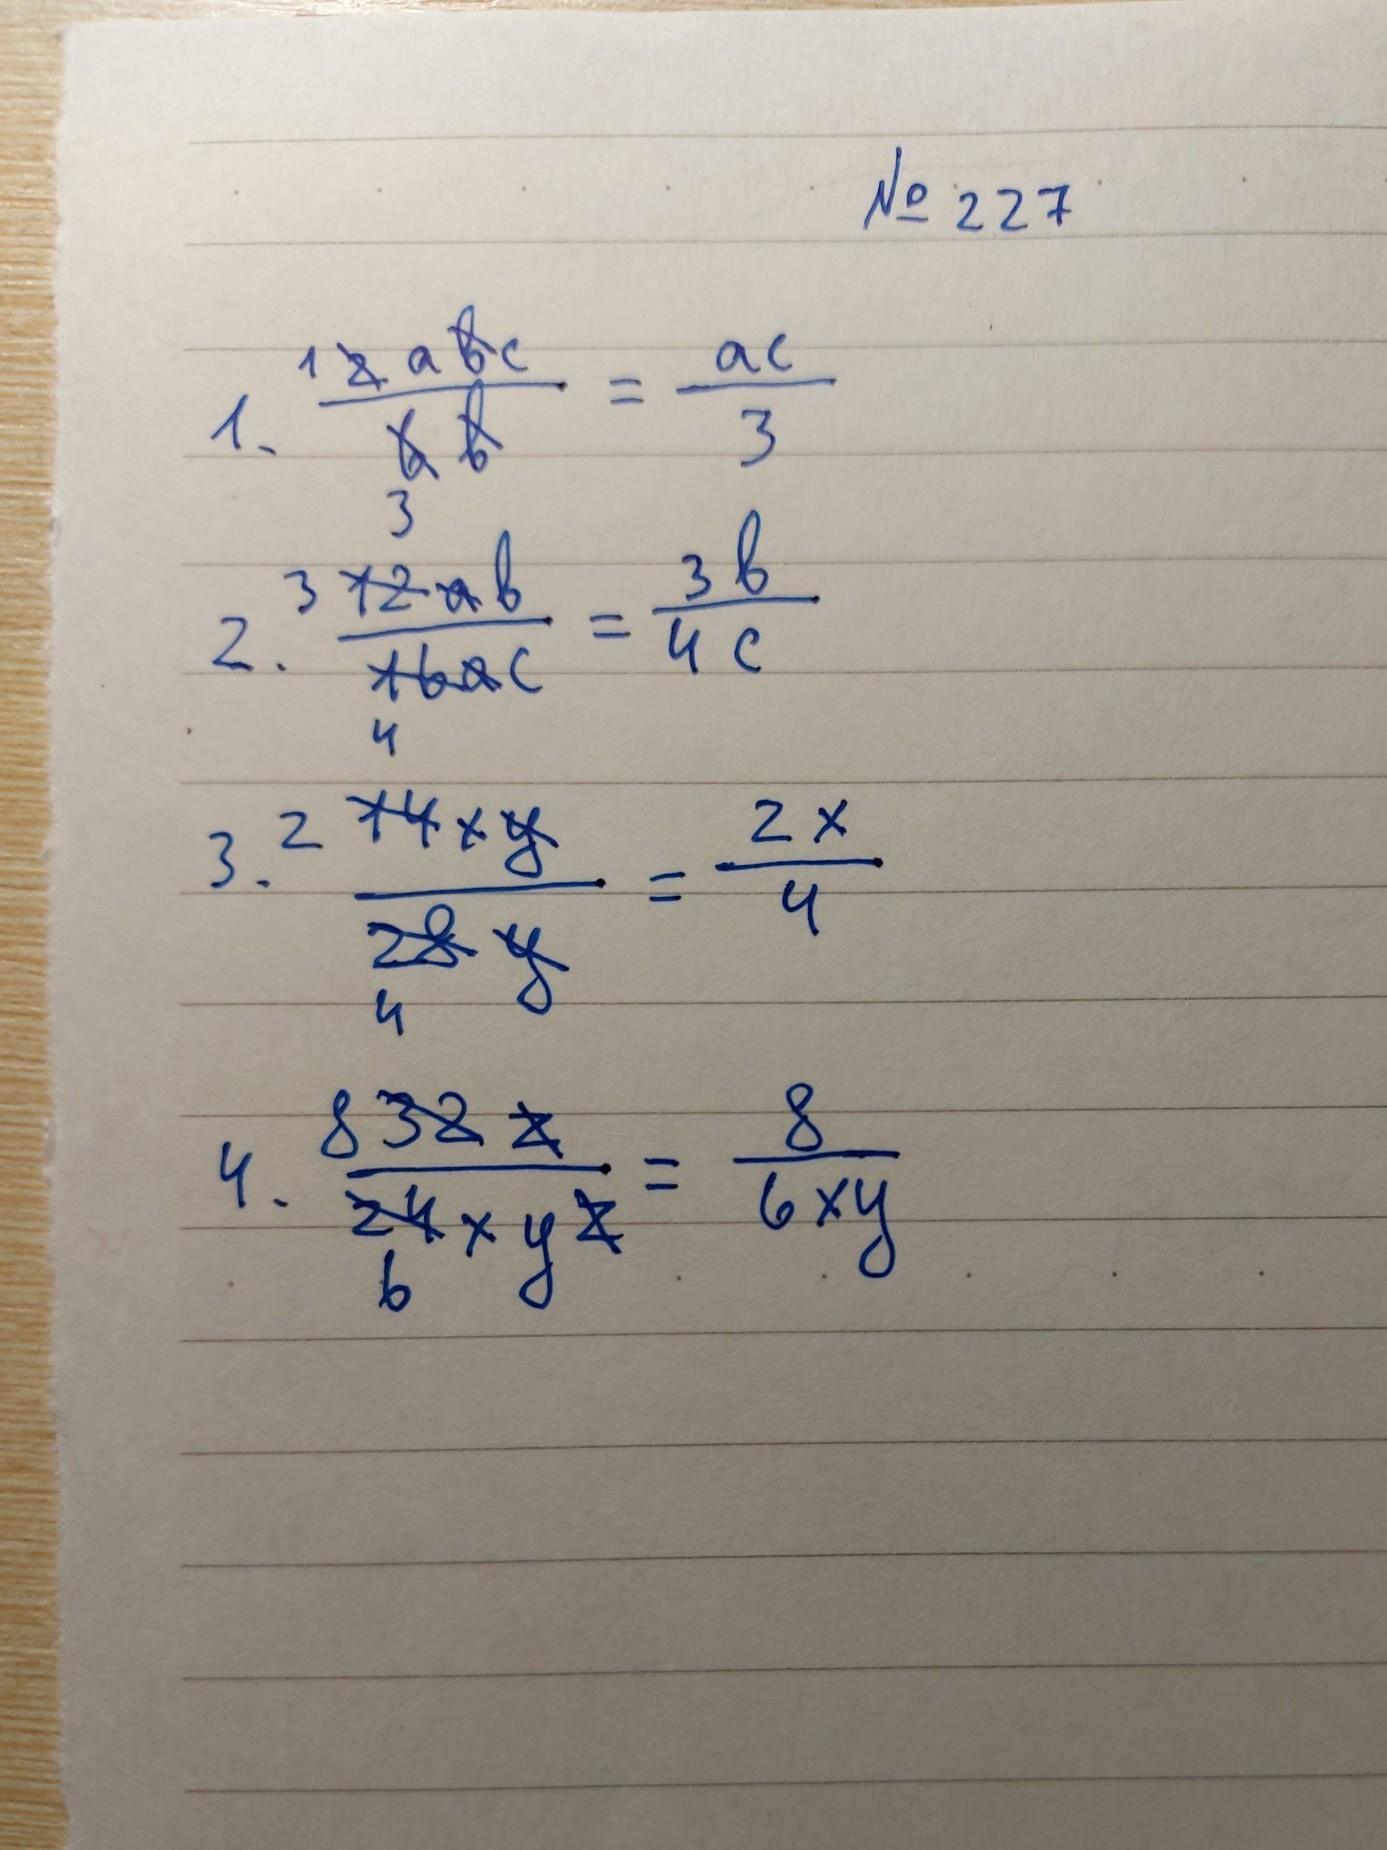 № 227
1. 1 2abc / 6b 3 = ac / 3
2. 3 12ab / 16ac 4 = 3b / 4c
3. 2 14xy / 28y 4 = 2x / 4
4. 8 32z / 24xyz 6 = 8 / 6xy